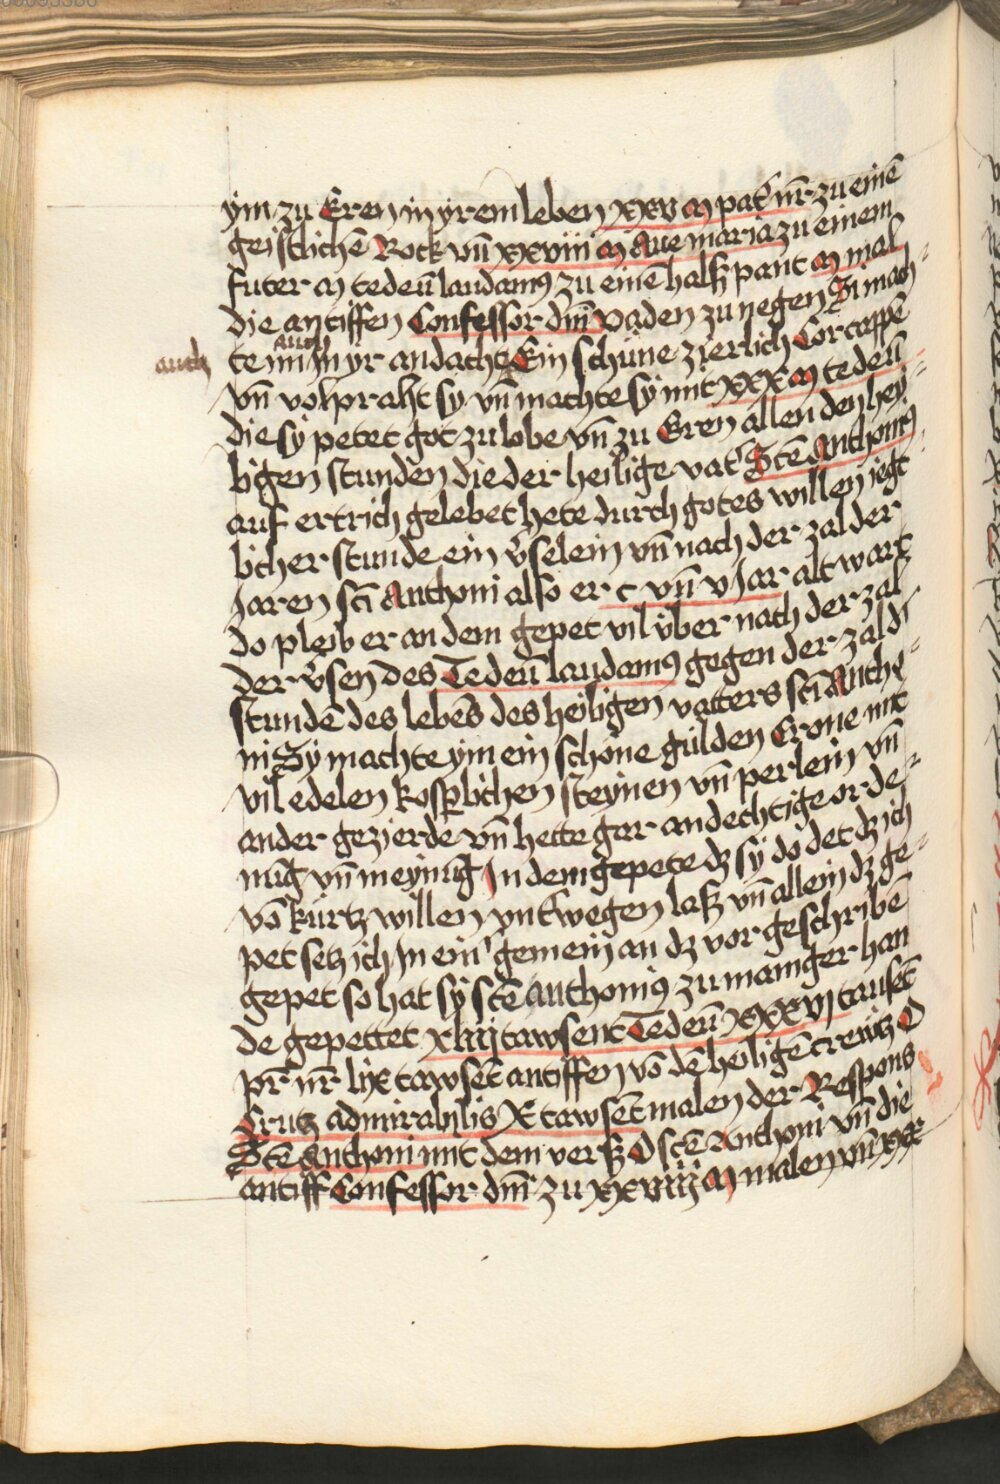 ym zu Eren in yrem leben xxv m pat' nr̄ zu einē
geistlichē Rock vn̄ xxviii m Aue maria zu einem
futer m tedeū laudamꝰ zu einē halß pant m mal
die antiffen Confessor dm̄ vaden zu negen Si mach
te im auch in yr andacht Ein schüne zierlich Corcappē
auch
vn̄ volpraht sy vn̄ machte sy mit xxx m tedeū
die sy petet got zu lobe vn̄ zu Eren allen den hey
ligen stunden die der heilige vat' Sctē Anthoniꝰ
auf ertrich gelebet hete durch gotes willen iegt
licher stunde ein v̄selein vn̄ nach der zal der
Jaren scti Anthoni also er c vn̄ v Jar alt wart
do pleib er an dem gepet vil über nach der zal
der v̄sen des Tedeū laudamꝰ gegen der zal d'
stundē des lebēs des heiligen vatters scti Antho
ni Sy machte ym ein schöne gulden Crone mit
vil edelen kosplichen steynen vn̄ perlein vn̄
ander gezierde vn̄ hette gar andechtige orde
nūg vn̄ meynūg In dem gepete dz sy do det dz ich
vō kurtz willen vnt'wegen laß vn̄ allein dz ge
pet setz ich In ein' gemein an dz vor geschribē
gepet so hat sy sctē Anthoniꝰ zu maniger han
de gepettet xliij tawsent Tedeū xxxvj tausēt
pr̄ nr̄ lix tawsēt antiffen vō dē heiligē creutz O
Crutz admirabilis X tawsēt malen der Respons
Sctē Anthoni mit dem verß O sctē Anthoni vn̄ die
antiff Confessor dm̄ zu xxviiij m malen vn̄ xx